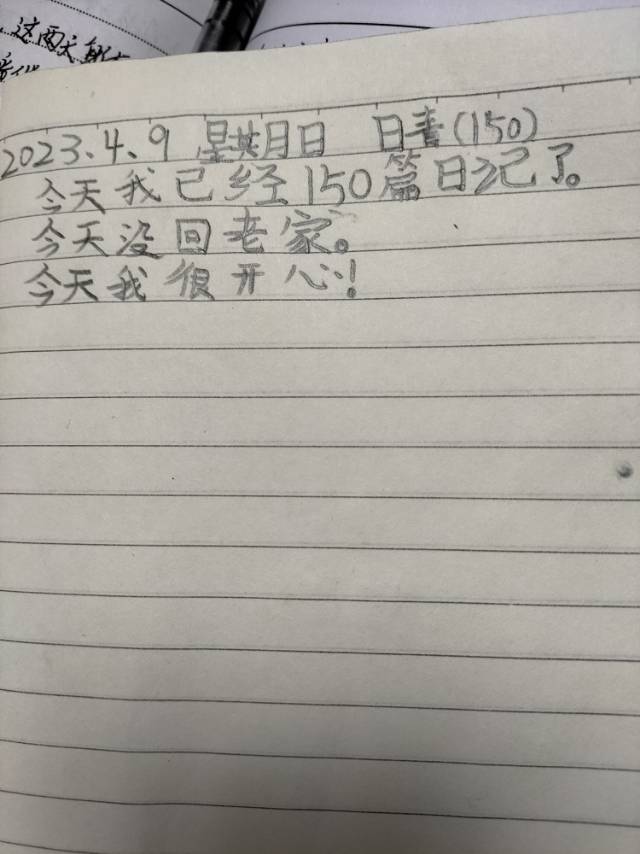 这两天
2023.4.9 星期日 日善(150)
今天我已经150篇日记了。
今天没回老家。
今天我很开心!